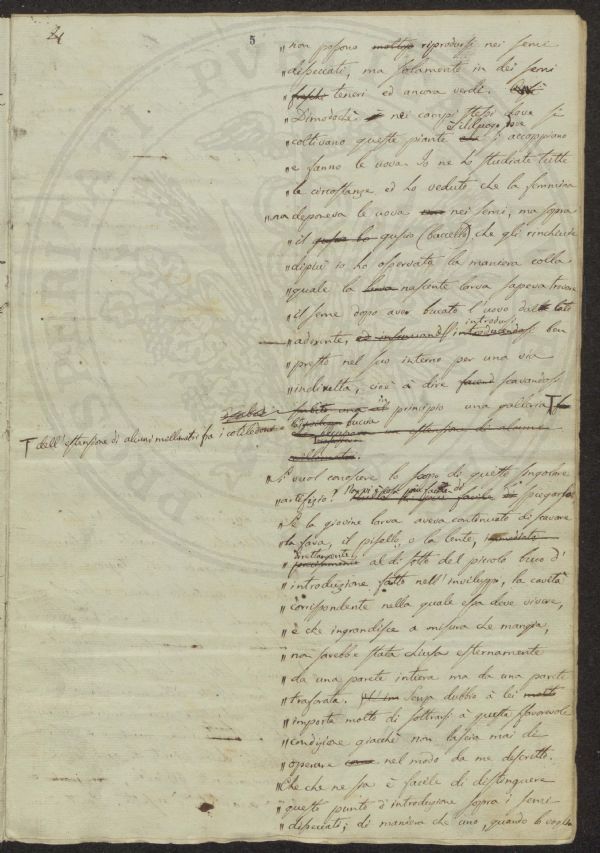 24
5
" non possono moltipi riprodursi nei semi
" disseccati, ma solamente in dei semi
" freschi teneri ed ancora verdi.
" Dimodochè nei campi stessi dove si
" coltivano queste piante si accoppiano
" e fanno le uova. Io ne ho studiate tutte
" le circostanze ed ho veduto che la femmina
" deponeva le uova non nei semi, ma sopra
" il guscio (baccello) che gli rinchiude
" dipiù io ho osservata la maniera colla
" quale la nascente larva sapeva trovare
" il seme dopo aver bucato l'uovo dal lato
introdursi
" aderente, ed insinuandosi introducendosi ben
" presto nel suo interno per una via
" indiretta, cioè à dire facend scavandosi
subito una al principio una galleria
T dell'estensione di alcuni millimetri fra i cotiledoni
buca
un estensione di alcuni
millimetri.
" Si vuol conoscere lo scopo di questo singolare
" artifizio? Non vi è cosa più facile di spiegarlo
" Se la giovine larva aveva continuato di scavare
" la fava, il pisello, o la lente, immediata
direttamente
" precisamente al di sotto del piccolo buco d'
" introduzione fatto nell'inviluppo, la cavità
" corrispondente nella quale essa deve vivere,
" e che ingrandisce a misura che mangia,
" sarebbe stata chiusa esternamente
" da una parete intiera ma da una parete
" traforata. Senza dubbio à lei molto
" importa molto di sottrarsi à questa sfavorevole
" condizione giacchè non lascia mai di
" operare come nel modo da me descritto.
" Che che ne sia è facile di distinguere
" questo punto d'introduzione sopra i semi
" disseccati; di maniera che uno, quando lo voglia